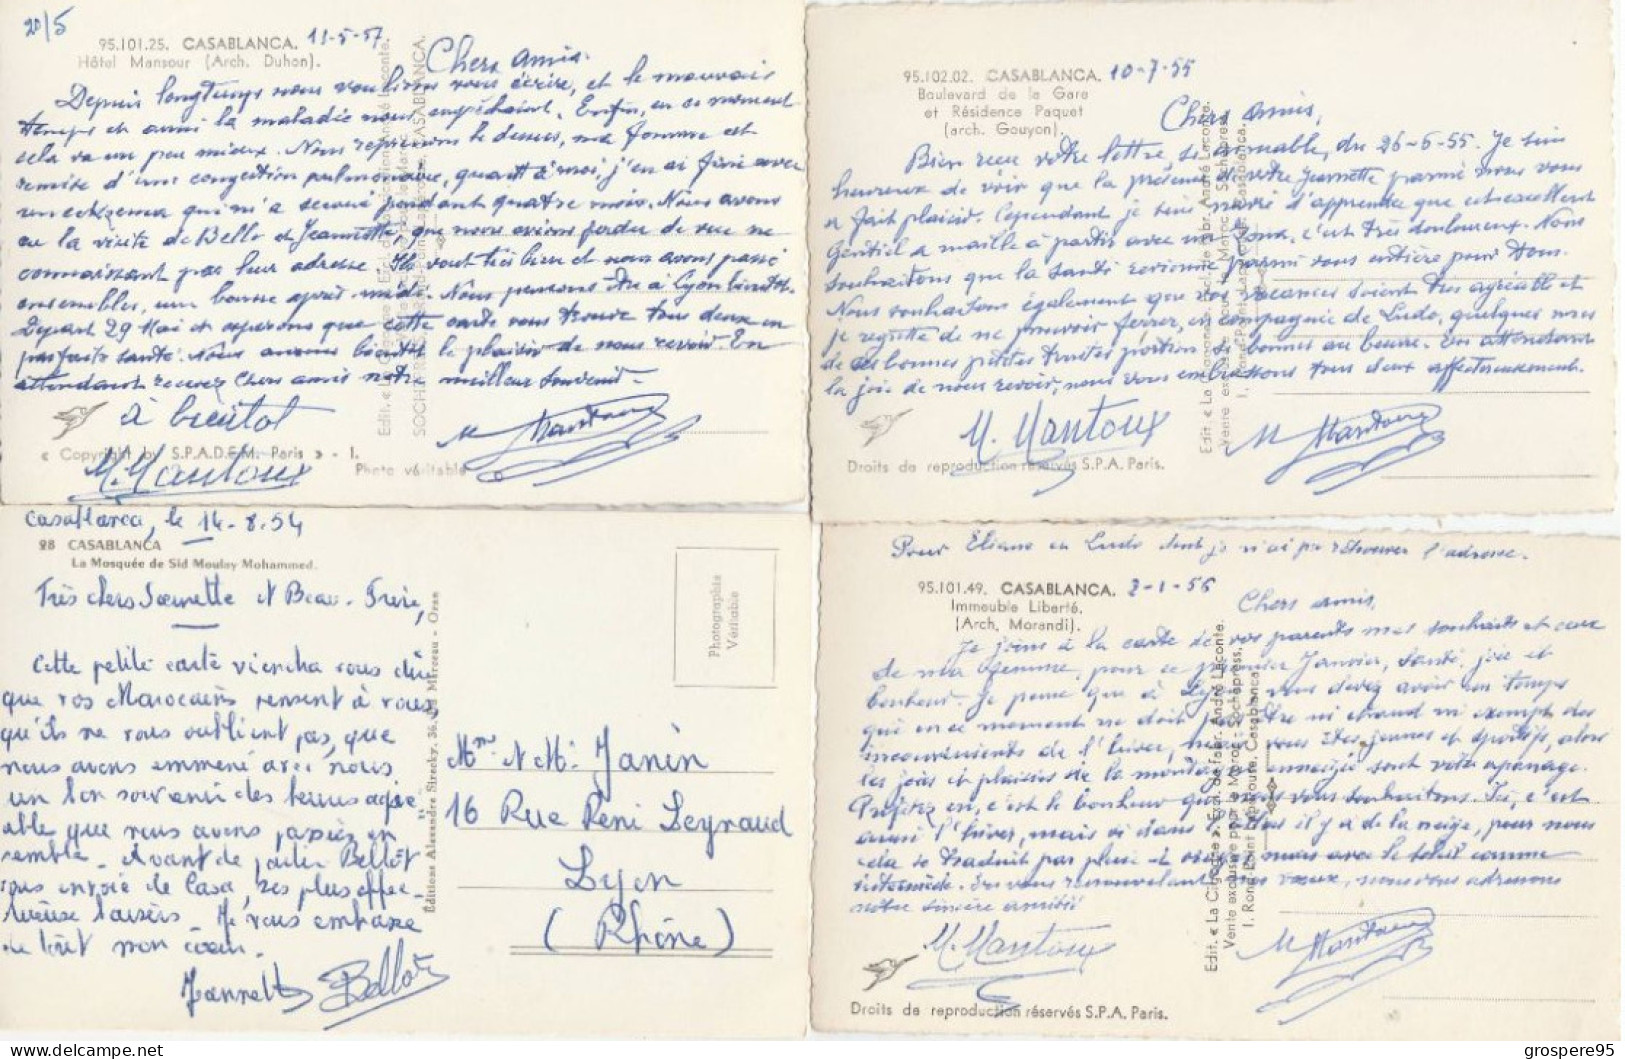 20/5
95.101.25. CASABLANCA. 11-5-57.
Hôtel Mansour (Arch. Duhon).
Chers amis.
Depuis longtemps nous voulions vous écrire, et le mauvais
temps et aussi la maladie nous empêchaient. Enfin, en ce moment
cela va un peu mieux. Nous reprenons le dessus, ma femme est
remise d'une congestion pulmonaire, quant à moi, j'en ai fini avec
un eckzema qui m'a secoué pendant quatre mois. Nous avons
eu la visite de Bello et Jeannette, que nous avions perdu de vue ne
connaissant pas leur adresse. Ils vont très bien et nous avons passé
ensembles, une bonne après-midi. Nous pensons être à Lyon bientôt.
Départ 29 Mai et espérons que cette carte vous trouve tous deux en
parfaite santé. Nous aurons bientôt le plaisir de nous revoir. En
attendant recevez Chers amis notre meilleur souvenir.
à bientôt
M. Mantoux
M Mantoux
« Copyright by S.P.A.D.E.M. Paris » - I.
Photo véritable
95.102.02. CASABLANCA. 10-7-55
Boulevard de la Gare
et Résidence Paquet
(arch. Gouyon).
Chers amis,
Bien reçu votre lettre, si aimable, du 26-6-55. Je suis
heureux de voir que la présence de votre Jeannette parmi nous vous
a fait plaisir. Cependant je suis navré d'apprendre que cet excellent
Gentiel a maille à partir avec un Zona, c'est très douloureux. Nous
souhaitons que la santé revienne parmi vous entière pour tous.
Nous souhaitons également que vos vacances soient très agréable et
je regrette de ne pouvoir ferrer, en compagnie de Ludo, quelques unes
de ces bonnes petites truites portion si bonnes au beurre. En attendant
la joie de nous revoir, nous vous embrassons tous deux affectueusement.
M. Mantoux
M Mantoux
Droits de reproduction réservés S.P.A. Paris.
Casablanca, le 14-8-54
28 CASABLANCA
La Mosquée de Sid Moulay Mohammed.
Très chers Jeannette et Beau-Frère,
Cette petite carte viendra vous dire
que vos Marocains pensent à vous
qu'ils ne vous oublient pas, que
nous avons emmené avec nous
un bon souvenir des temps agré-
able que nous avons passés en
semble. Avant de partir Bellot
vous envoie de Casa, ses plus affec-
tueuse baisers. Je vous embrasse
de tout mon cœur.
Jannette Bellot
Éditions Alexandre Sirecky, 36,
Mirceau - Oran
Photographie
Véritable
Mme et Mr Janin
16 Rue Réné Leynaud
Lyon
(Rhône)
Pour Eliane et Ludo dont je n'ai pu retrouver l'adresse.
95.101.49. CASABLANCA. 2-1-56
Immeuble Liberté.
(Arch. Morandi).
Chers amis,
Je joins à la carte de vos parents mes souhaits et ceux
de ma femme, pour ce premier Janvier, Santé, joie et
bonheur. Je pense que à Lyon vous devez avoir un temps
qui en ce moment ne doit pas être ni chaud ni exempt des
inconvénients de l'hiver, mais vous êtes jeunes et sportifs, alors
les joies et plaisirs de la montagne enneigée sont votre apanage.
Profitez en, c'est le bonheur que nous vous souhaitons. Ici, c'est
aussi l'hiver, mais si dans l'Atlas il y a de la neige, pour nous
cela se traduit par pluie et mais avec le soleil comme
intermède. En vous renouvelant nos vœux, nous vous adressons
notre sincère amitié
M. Mantoux
M Mantoux
Droits de reproduction réservés S.P.A. Paris.
grospere95